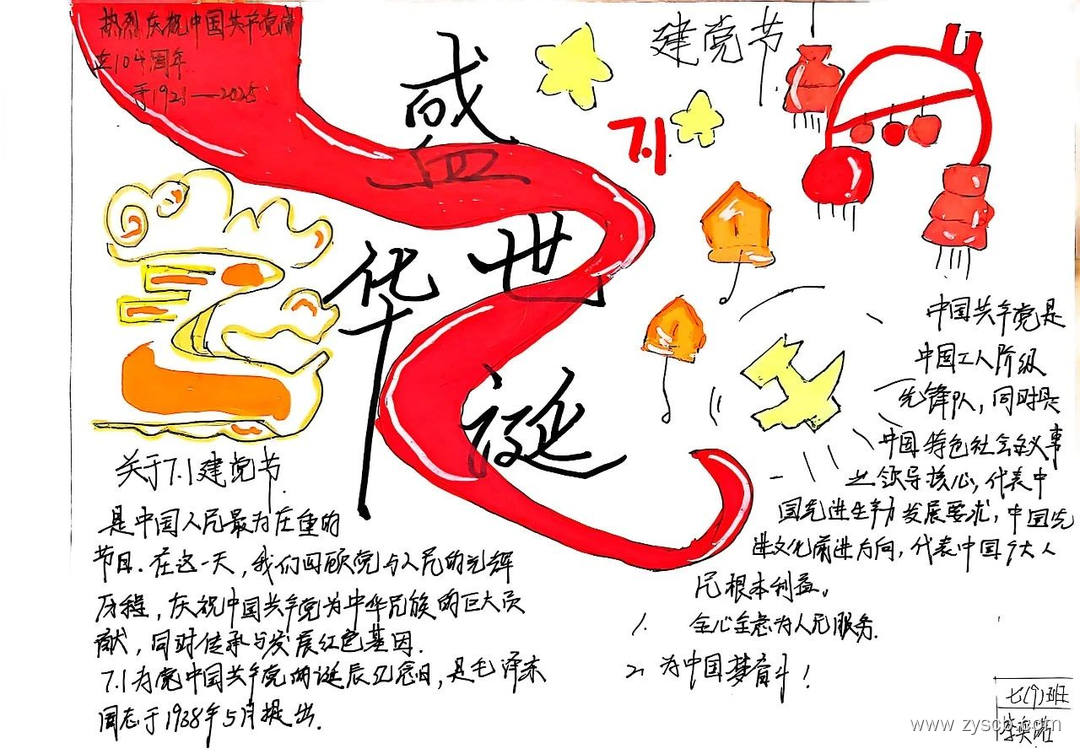 热烈庆祝中国共产党成
立104周年
于1921—2025
盛
世
华
诞
建党节
7.1
关于7.1建党节
是中国人民最为庄重的
节日.在这一天,我们回顾党与人民的光辉
历程,庆祝中国共产党为中华民族的巨大贡
献,同时传承与发展红色基因.
7.1为党中国共产党的诞辰纪念日,是毛泽东
同志于1938年5月提出.
中国共产党是
中国工人阶级
先锋队,同时是
中国特色社会主义事
业领导核心,代表中
国先进生产力发展要求,中国先
进文化前进方向,代表中国广大人
民根本利益。
1. 全心全意为人民服务.
2. 为中国梦奋斗!
七(9)班
www.zysc
.com